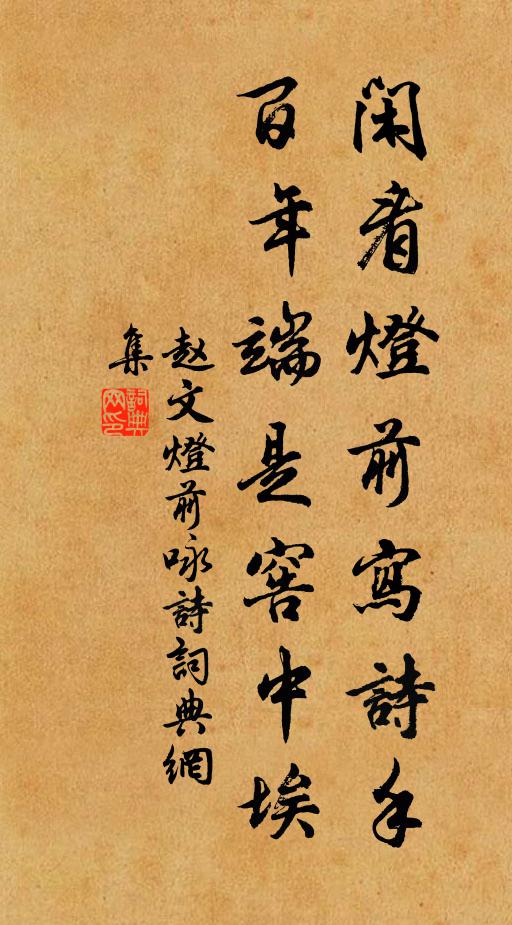 閑看燈前寫詩手
百年端是窖中埃
赵文燈前咏詩詞典網
集
詞典
网印